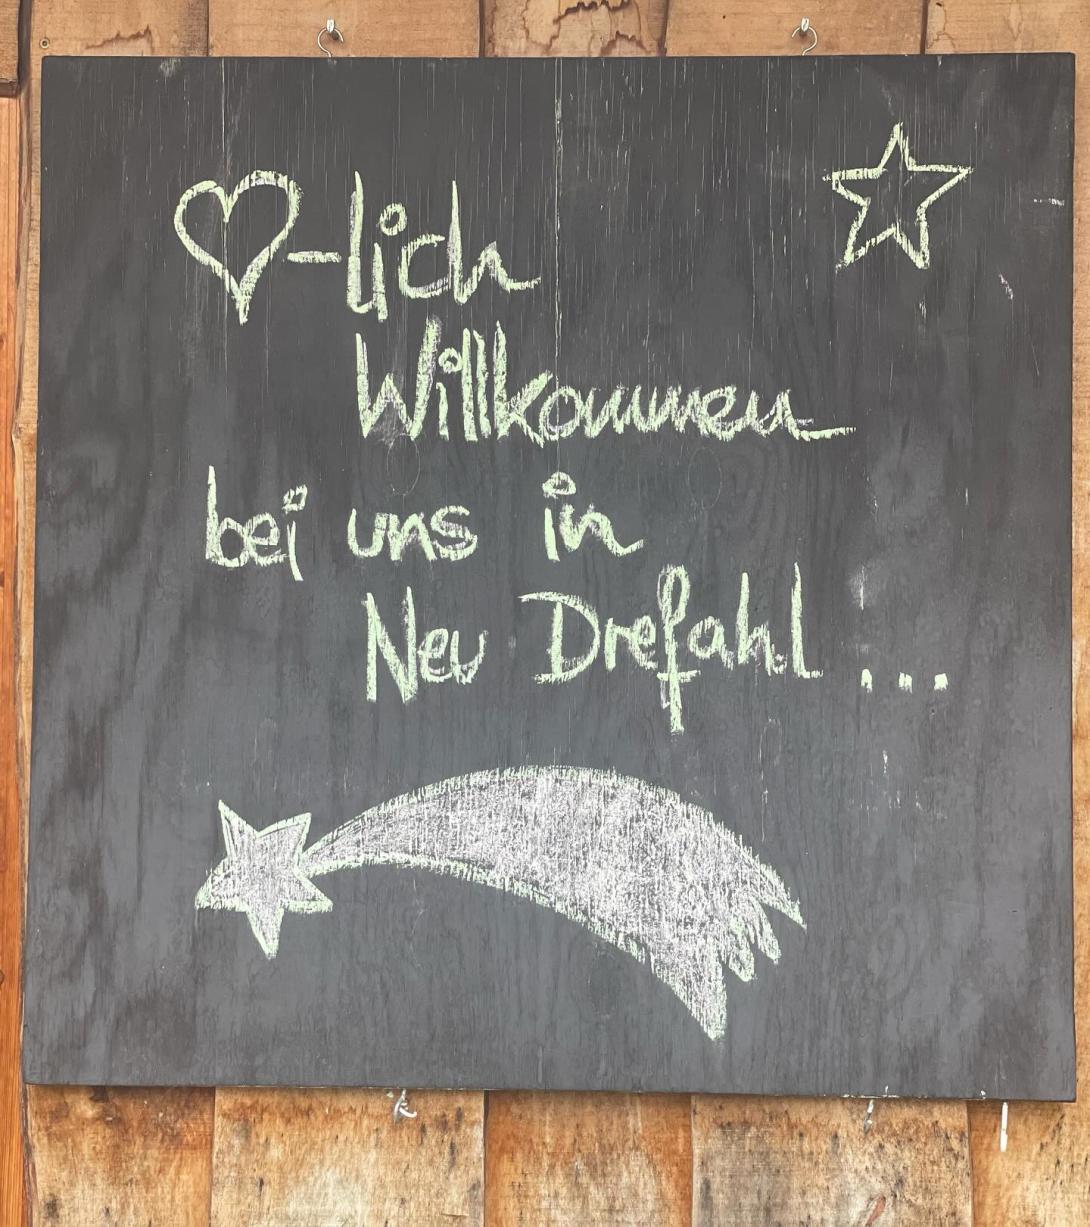 ♡-lich
Willkommen
bei uns in
Neu Drefahl...